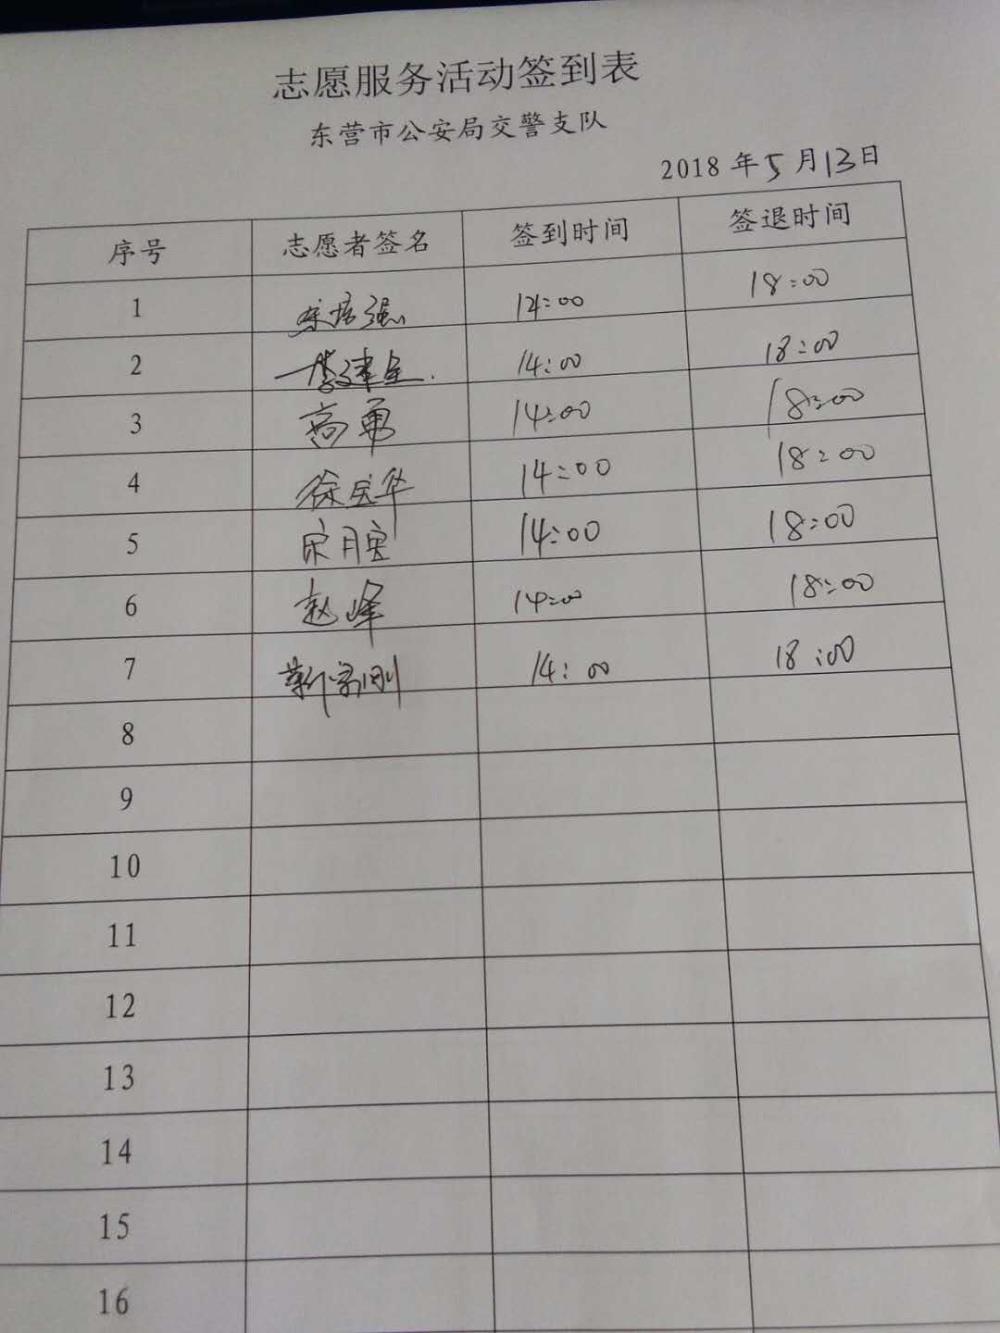 志愿服务活动签到表
东营市公安局交警支队
2018 年 5 月 13 日
序号 志愿者签名 签到时间 签退时间
1 14:00 18:00
2 14:00 18:00
3 高勇 14:00 18:00
4 徐宝华 14:00 18:00
5 宋月宝 14:00 18:00
6 赵峰 14:00 18:00
7 靳家刚 14:00 18:00
8
9
10
11
12
13
14
15
16